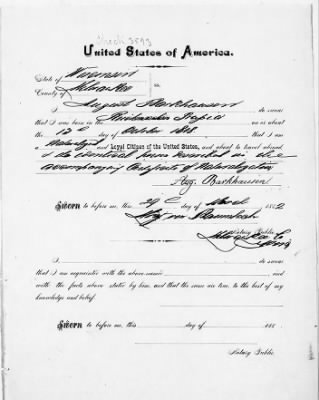 United States of America.
State of Wisconsin
County of Milwaukee ss.
I, August Barkhausen do swear
that I was born in the on or about
the day of October 1818 that I am
a Naturalized and Loyal Citizen of the United States, and about to travel abroad,
& the identical person in the
accompanying Certificate of Naturalization
Aug. Barkhausen
Sworn to before me, this 29 day of March 1882
Notary Public
I, do swear
that I am acquainted with the above named and
with the facts above stated by him, and that the same are true, to the best of my
knowledge and belief.
Sworn to before me, this day of 188
Notary Public.